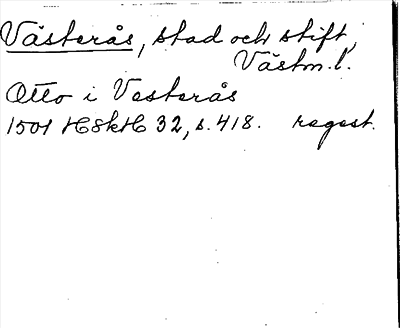 Västerås, stad och stift,
Västm. l.
Otto i Vesterås
1501 HSkH 32, s. 418. regest.